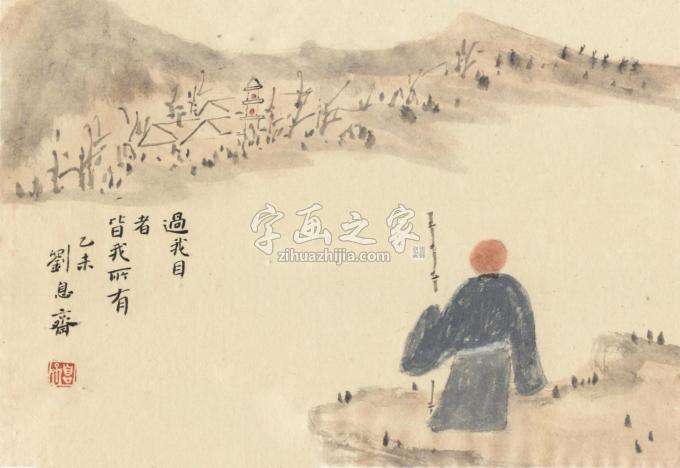 過我目
者
皆我所有
乙未
劉息齋
字画之家
zihuazhijia.com